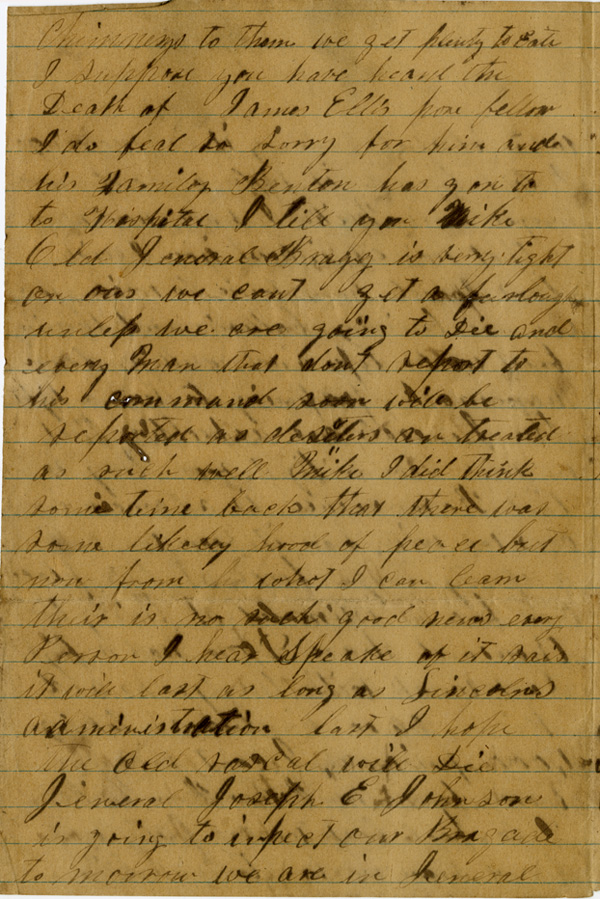 Chimneys to them we get plenty to Eate
I suppose you have heard the
Death of James Ellis pore fellow
I do feal so Sorry for him and
his Familey Benton has gon to
to Hospital I tell you Mike
Old Jeneral Bragg is very tight
on ous we cant get a furlough
unless we are going to Die and
every Man that dont report to
his command soon will be
reported as deserters an treated
as such well Mike I did think
some time back that there was
some likeley hood of peace but
now from what I can learn
their is no such good news every
Person I hear Speake of it sais
it will last as long as Lincolns
administration last I hope
the Old rascal will Die
Jeneral Joseph E Johnson
is going to inspect our Bragade
to morrow we are in Jeneral